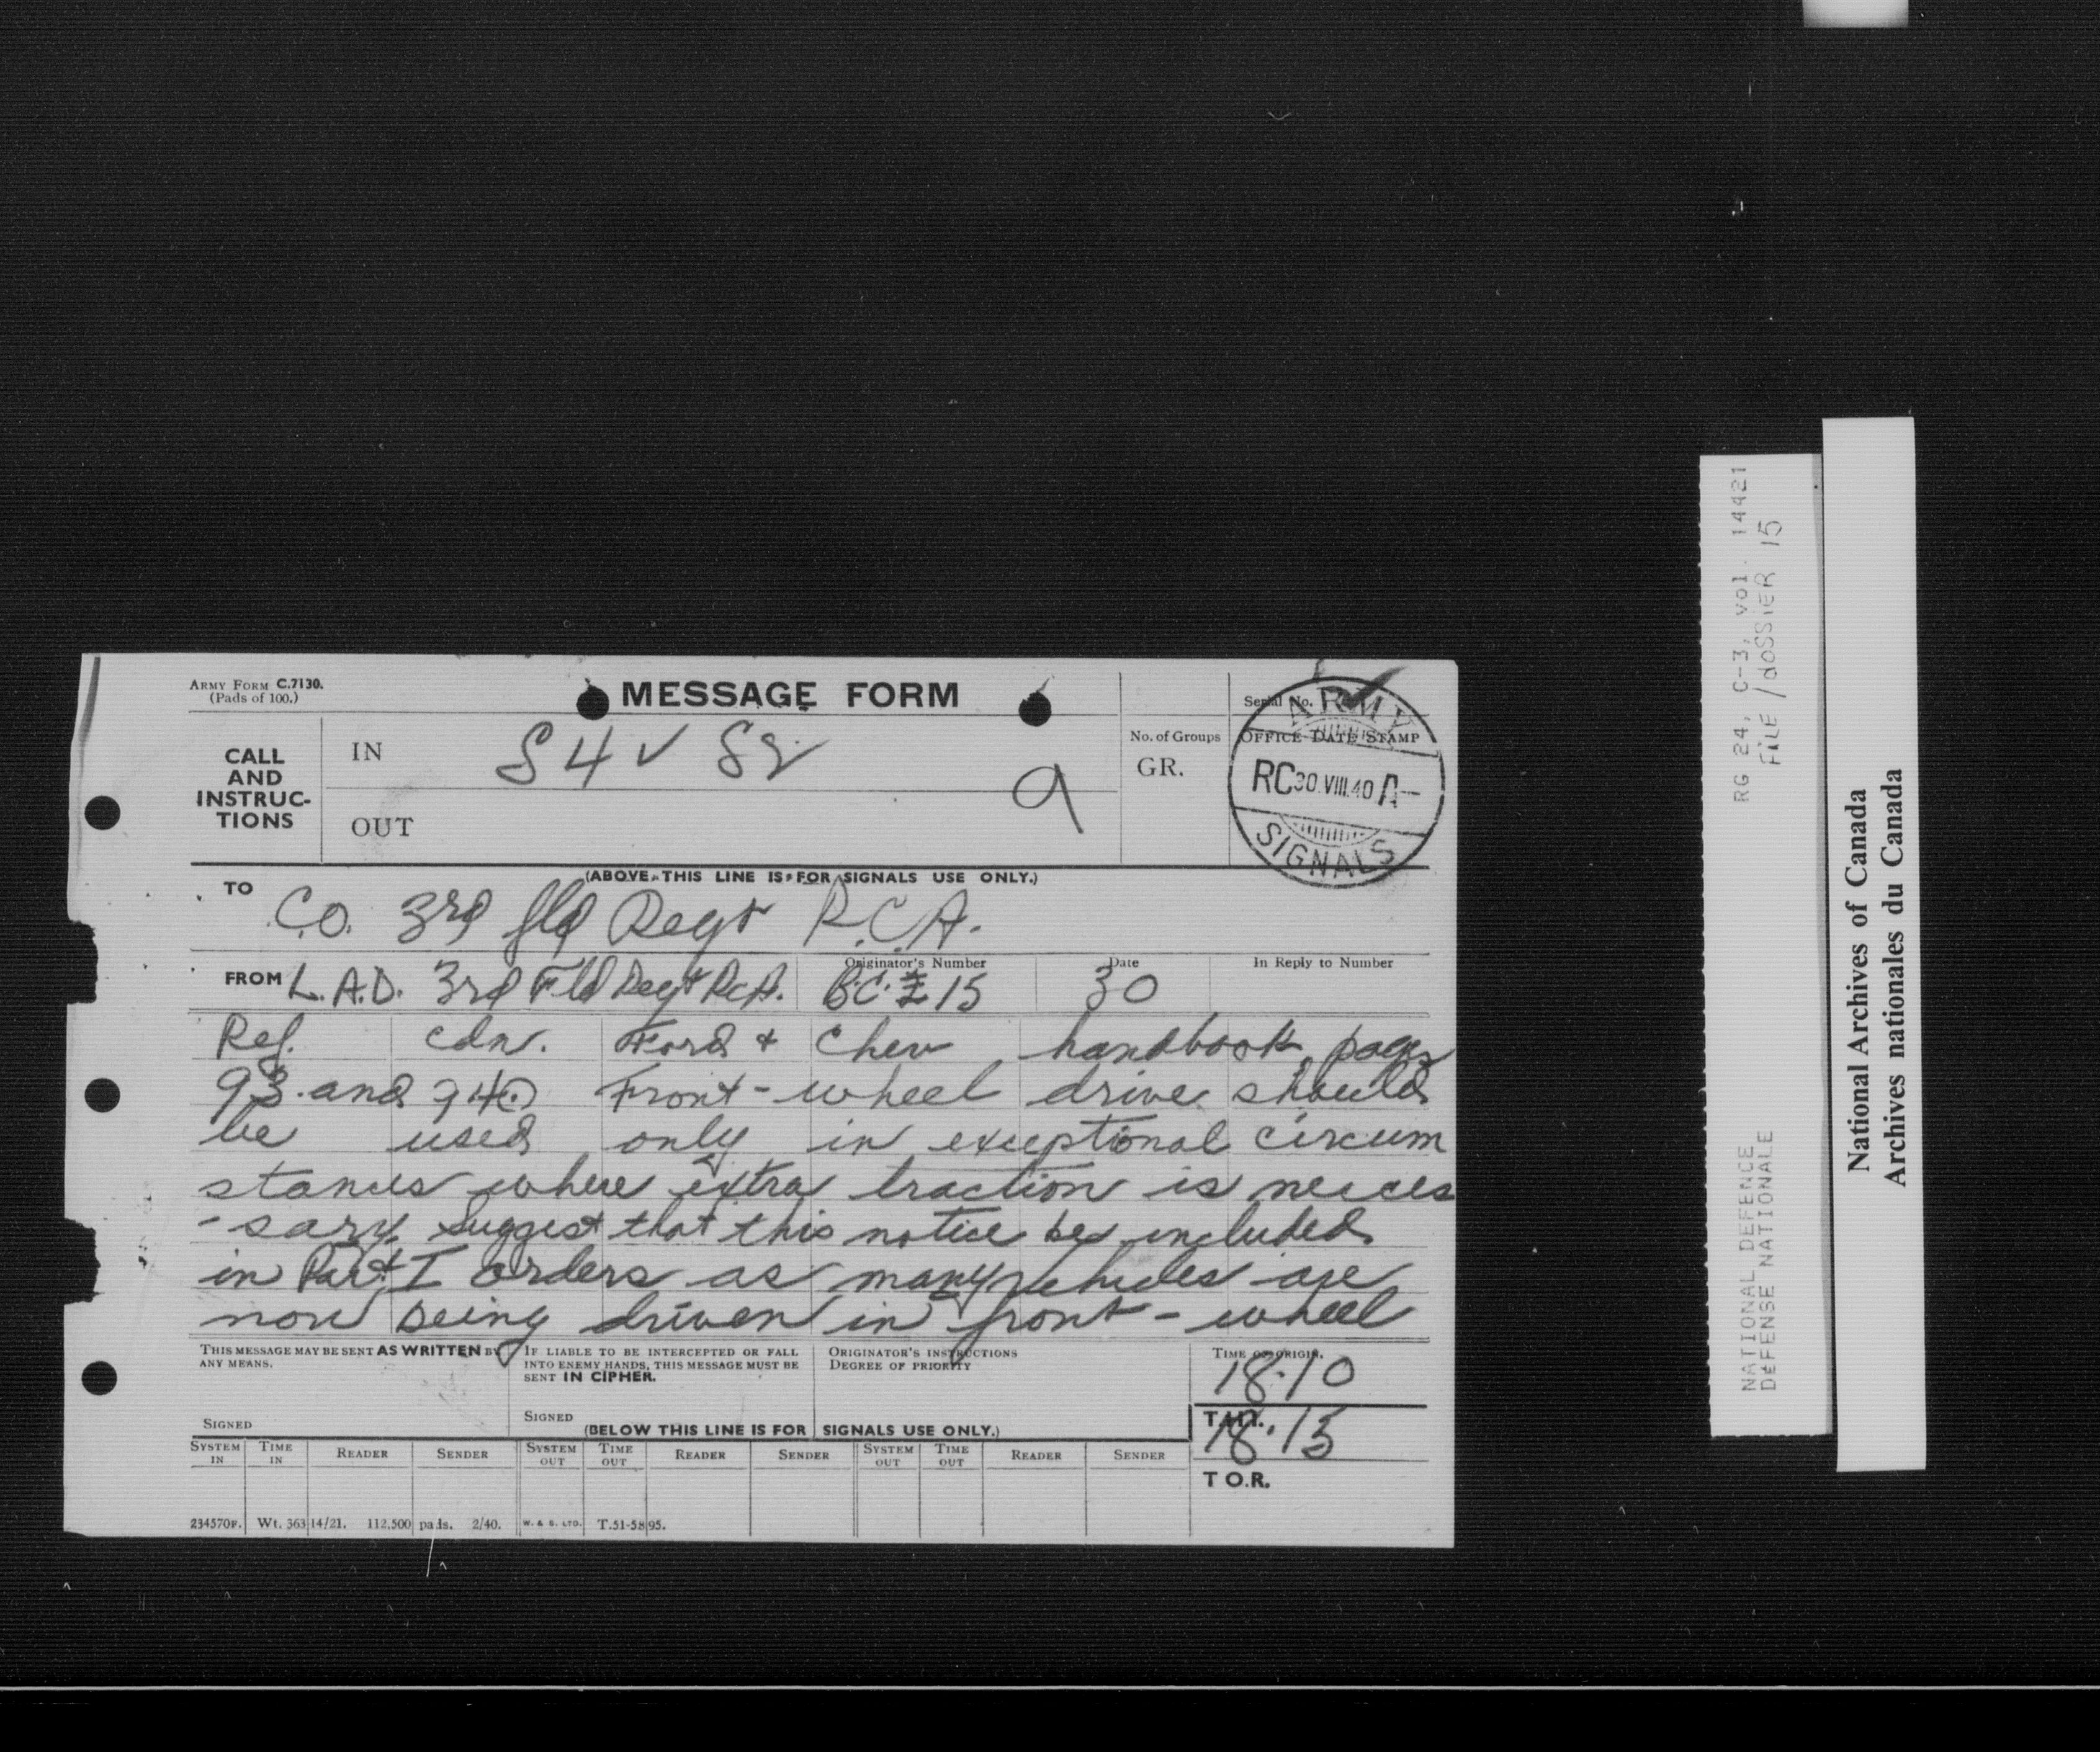 ARMY FORM C.7130.
(Pads of 100.)
MESSAGE FORM
Serial No.
CALL
AND
INSTRUC-
TIONS
IN
S4 V S2
OUT
9
No. of Groups
GR.
OFFICE DATE STAMP
ARMY
RC 30.VIII.40 A-
SIGNALS
(ABOVE THIS LINE IS FOR SIGNALS USE ONLY.)
TO C.O. 3rd fld Regt R.C.A.
FROM L.A.D. 3rd Fld Regt RCA.
Originator's Number
B.C. 15
Date
30
In Reply to Number
Ref. cdn. Ford + Chev handbook pages
93 and 94 Front-wheel drive should
be used only in exceptional circum
stances where extra traction is necces
-sary. Suggest that this notice be included
in Part I orders as many vehicles are
now being driven in front-wheel
THIS MESSAGE MAY BE SENT AS WRITTEN BY
ANY MEANS.
SIGNED
IF LIABLE TO BE INTERCEPTED OR FALL
INTO ENEMY HANDS, THIS MESSAGE MUST BE
SENT IN CIPHER.
SIGNED
ORIGINATOR'S INSTRUCTIONS
DEGREE OF PRIORITY
TIME OF ORIGIN.
18.10
T.H.I.
18.15
T O.R.
(BELOW THIS LINE IS FOR SIGNALS USE ONLY.)
SYSTEM IN TIME IN READER SENDER SYSTEM OUT TIME OUT READER SENDER SYSTEM OUT TIME OUT READER SENDER
234570F. Wt. 36314/21. 112,500 pads. 2/40. W. & S. LTD. T.51-5895.
RG 24, C-3, vol. 14421
FILE/dOSSiER 15
NATIONAL DEFENCE
DÉFENSE NATIONALE
National Archives of Canada
Archives nationales du Canada